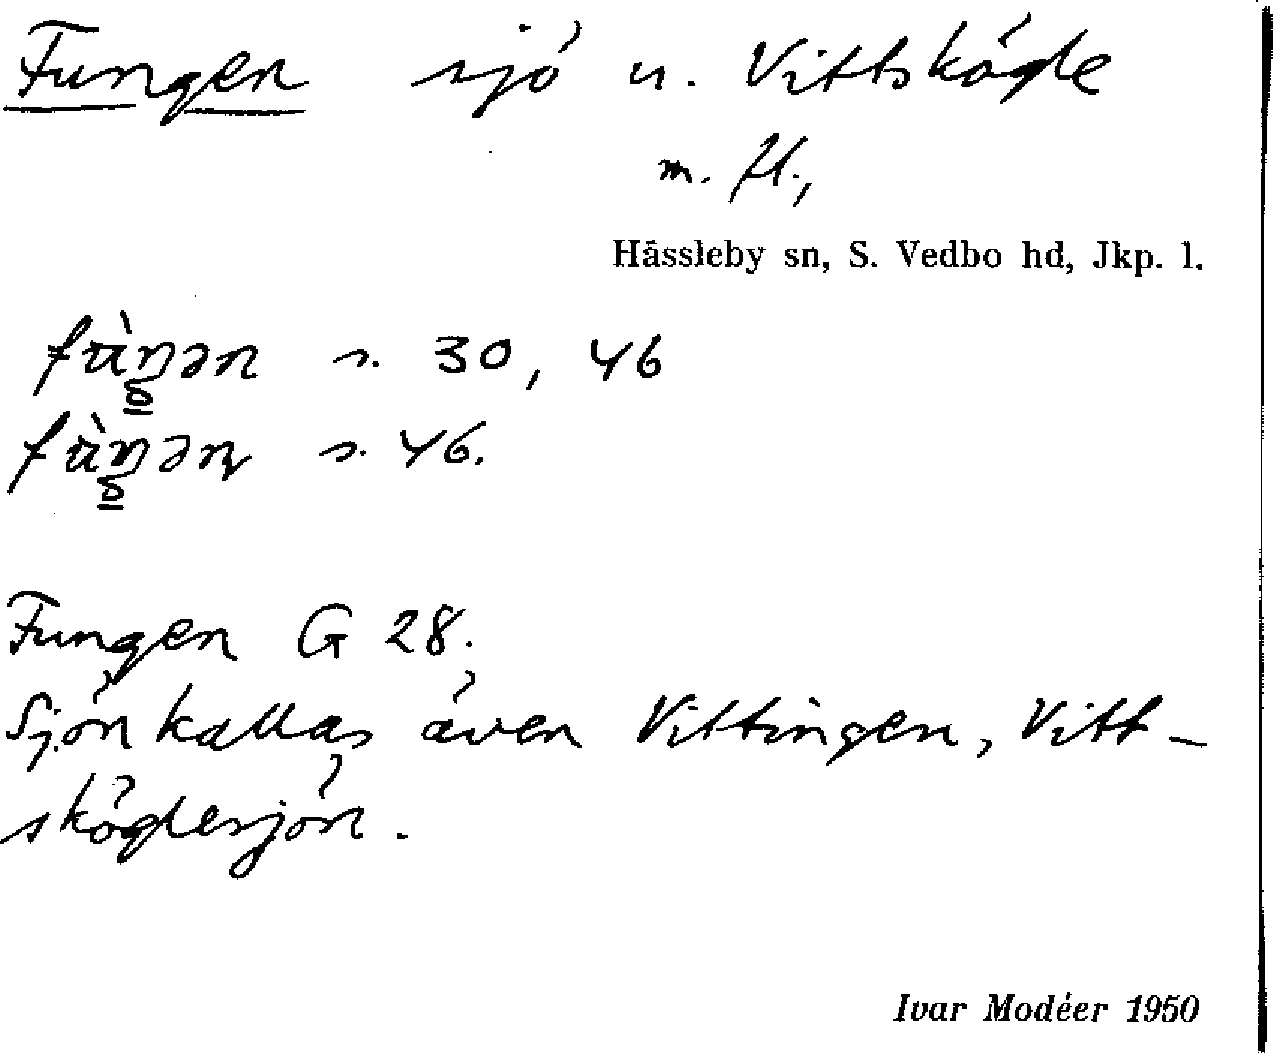 Fungen sjö u. Vittskögle
m. fl.,
Hässleby sn, S. Vedbo hd, Jkp. l.
fùŋən s. 30, 46
fùŋən s. 46.
Fungen G 28.
Sjön kallas även Vittingen, Vitt-
sköglesjön.
Ivar Modéer 1950